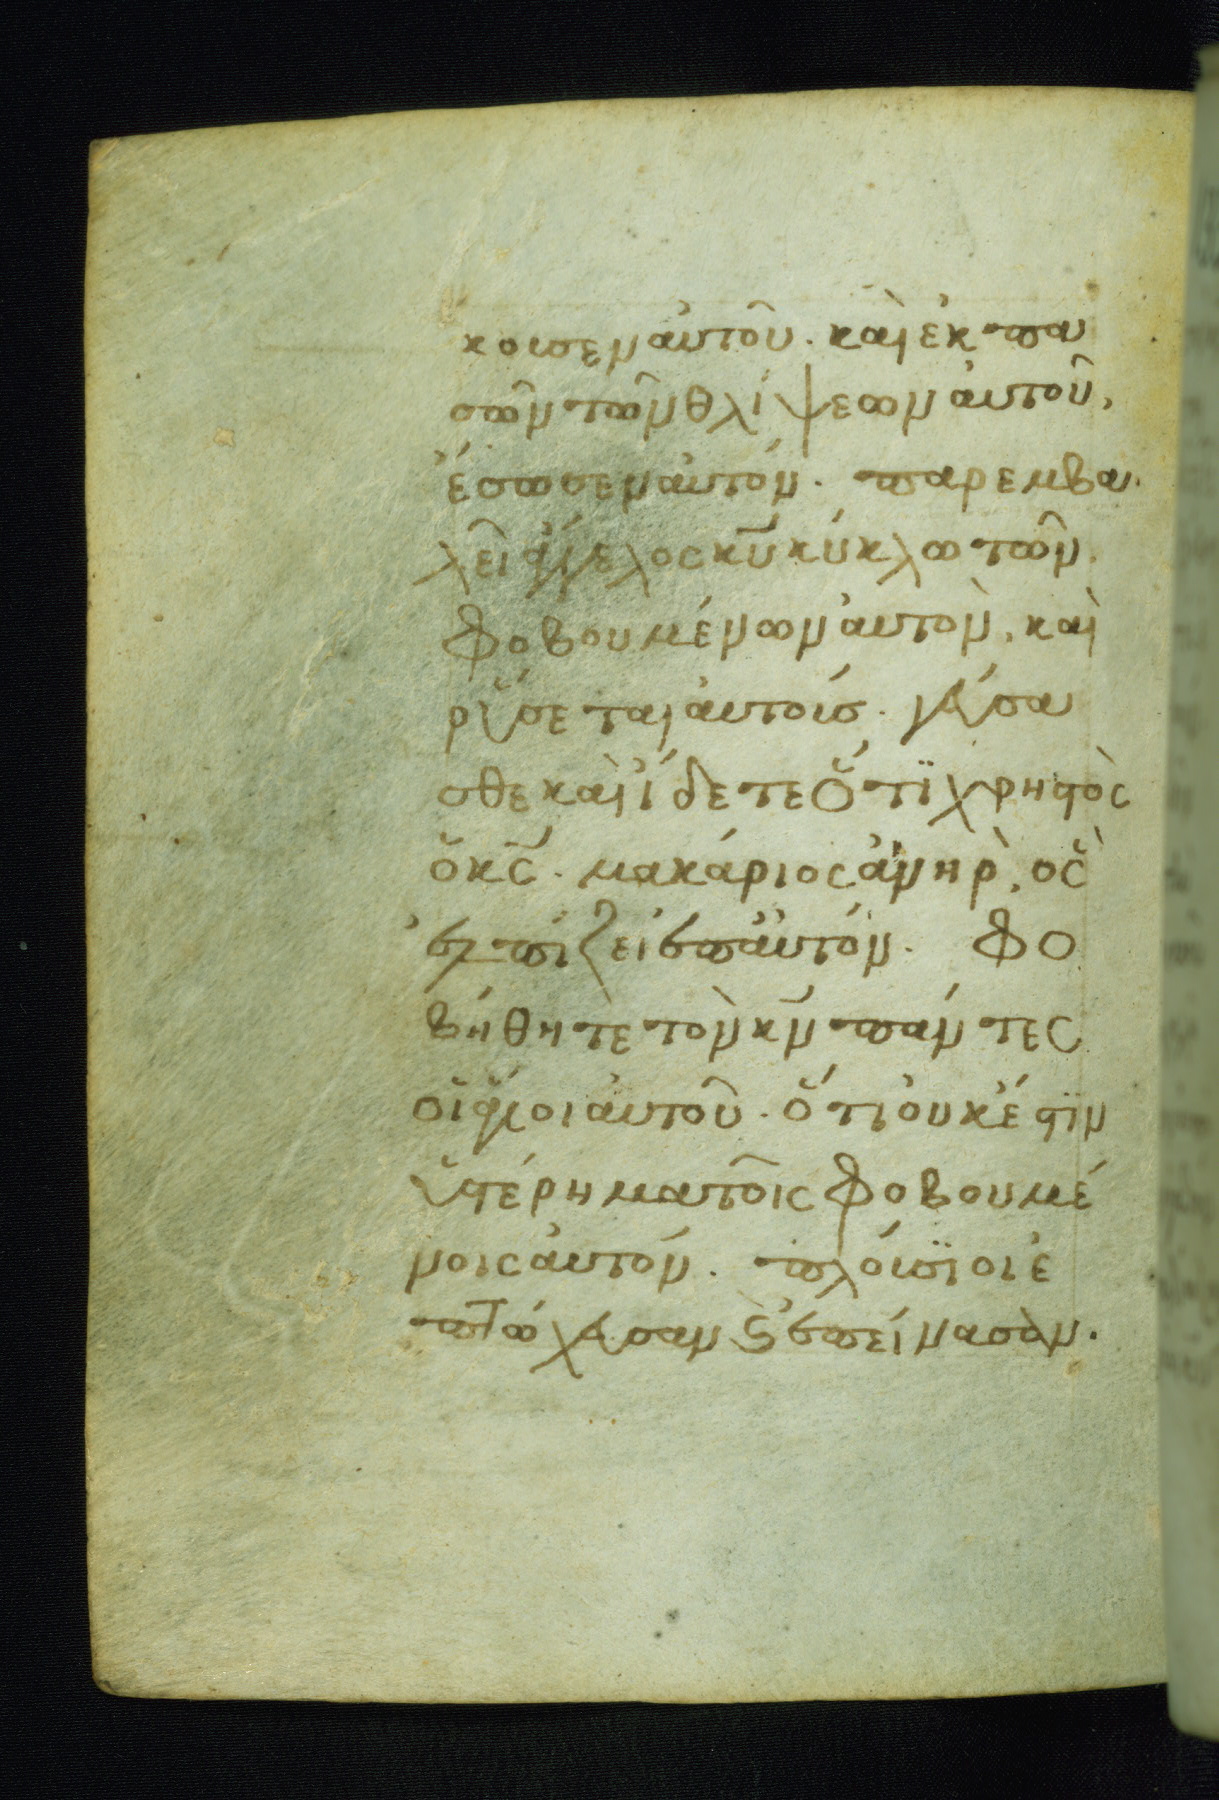 κουσεν αυτοῦ. καὶ ἐκ πα
σῶν τῶν θλίψεων αὐτοῦ,
ἔσωσεν αὐτόν. παρεμβα
λεῖ ἄγγελος κυ κύκλω τῶν
φοβουμένων αὐτὸν, καὶ
ρύσεται αὐτούσ. γεύσα
σθε καὶ ἴδετε ὅτϊ χρηστὸς
ὁ κς. μακάριος ἀνὴρ, ὃς
ἐλπίζει ἐπ αὐτόν. φο
βήθητε τὸν κν πάντες
οἱ ἅγιοι αὐτοῦ. ὅτι οὐκ ἔστϊν
ὑστέρημα τοῖς φοβουμέ
νοις αὐτόν. πλούσϊοι ἐ
πτώχευσαν καὶ ἐπείνασαν.